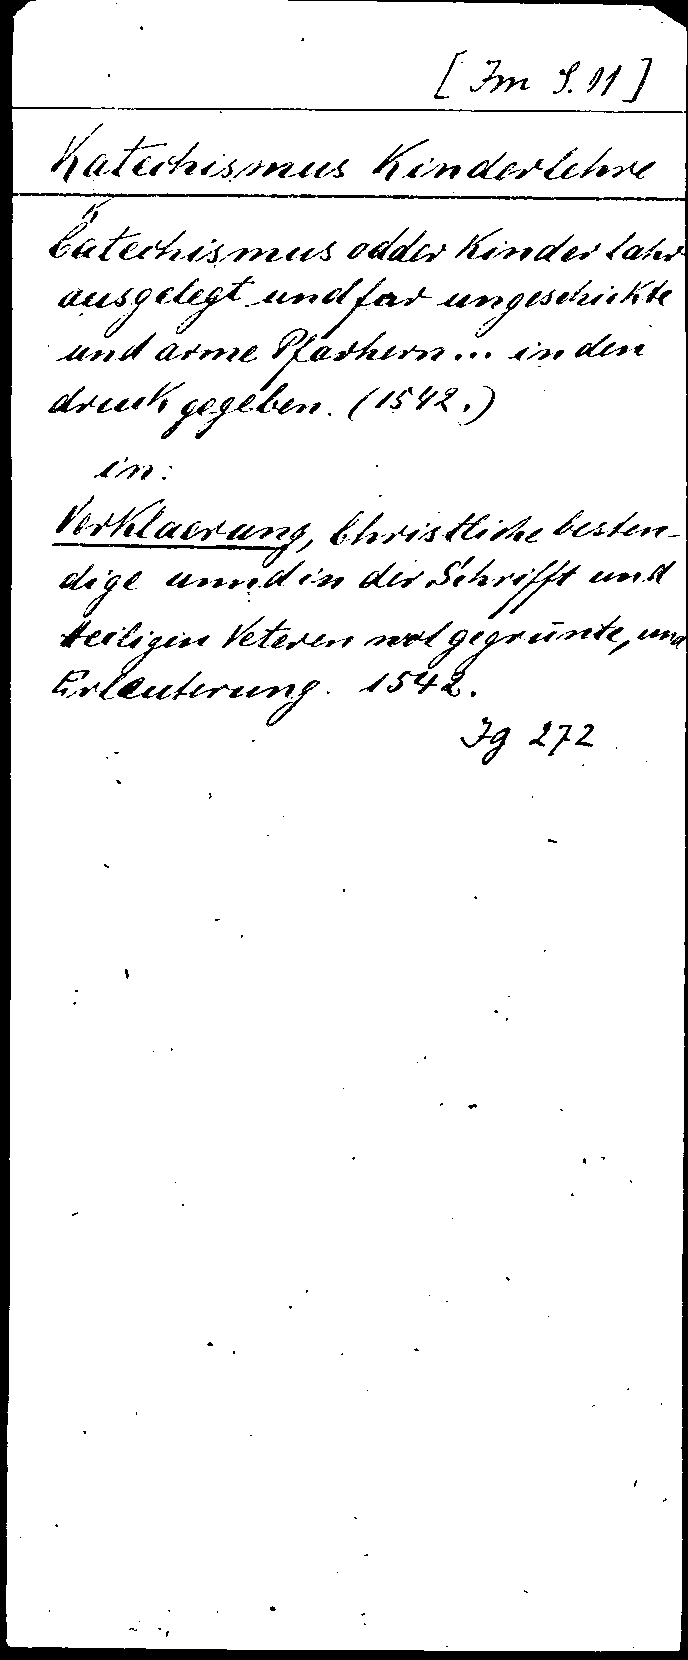 [Im S. 11]
Katechismus Kinderlehre
Catechismus odder Kinder lahr
ausgelegt und far ungeschickte
und arme Pfarhern... in den
druck gegeben. (1542.)
in:
Verklaerung, Christliche besten-
dige unnd in der Schrifft und
Heiligen Veteren wol gegrünte, und
Erleuterung. 1542.
Ig 272